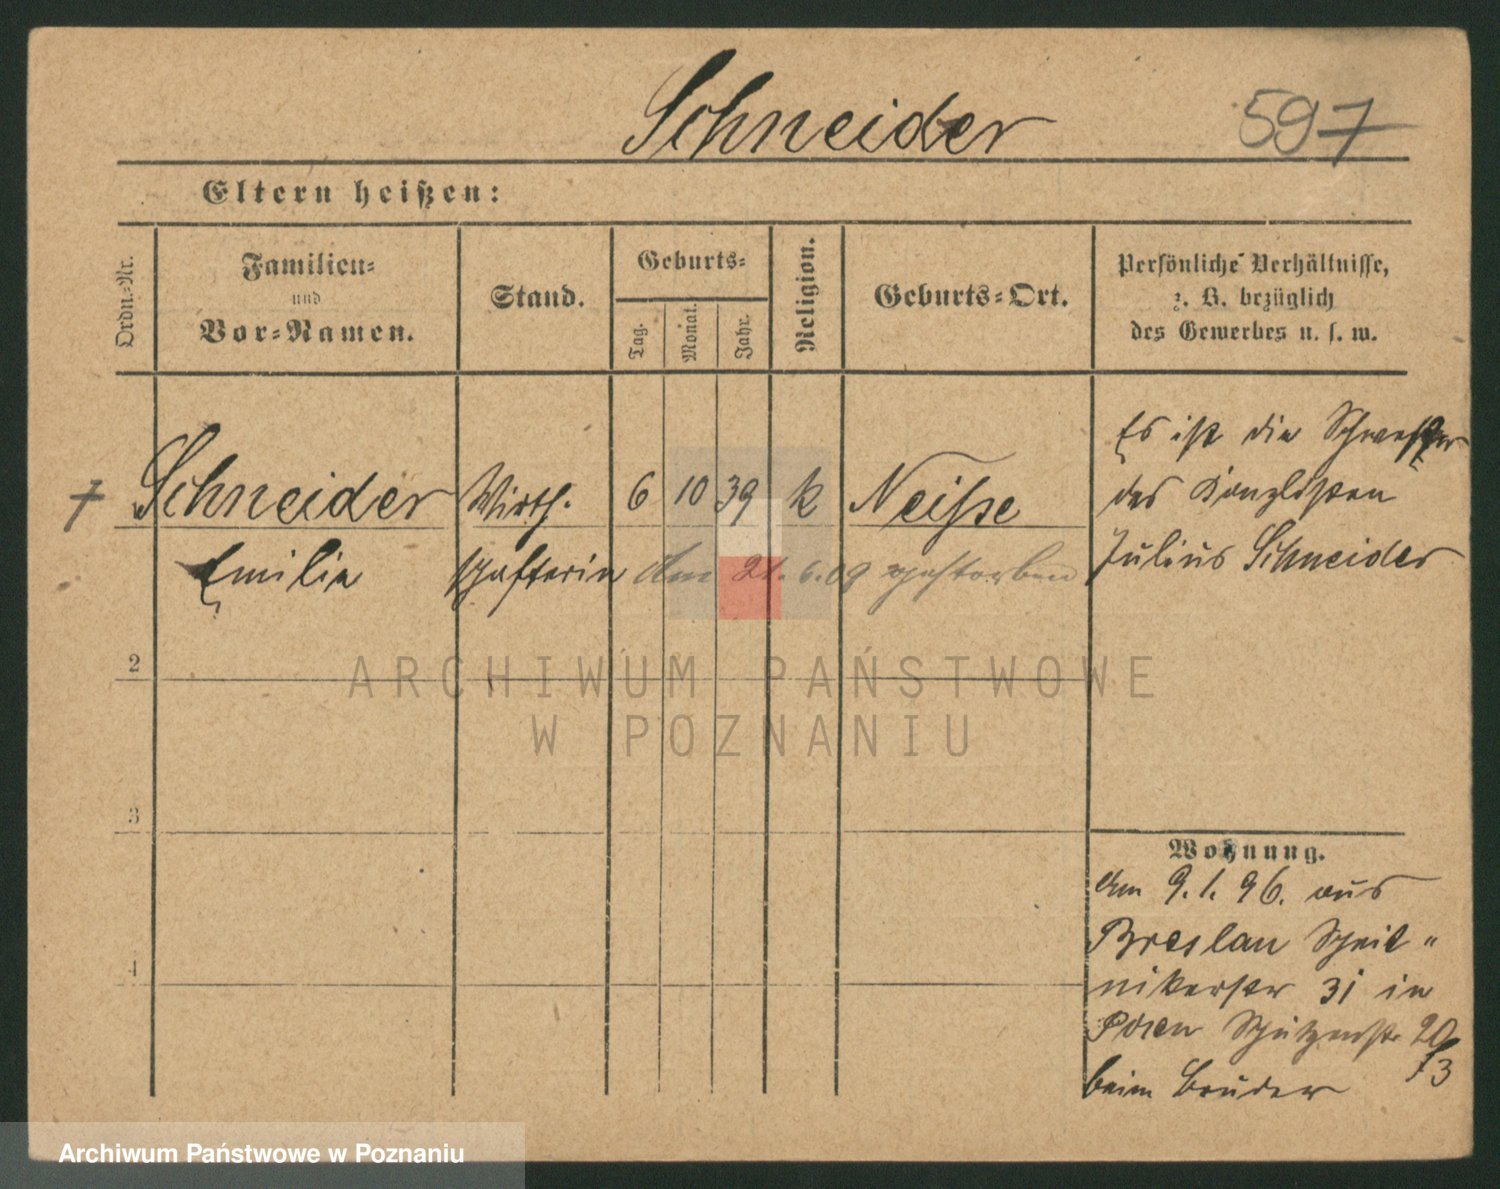 Schneider
597
Eltern heißen:
Ordn.-Nr.
Familien-
und
Vor-Namen.
Stand.
Geburts-
Tag.
Monat.
Jahr.
Religion.
Geburts-Ort.
Persönliche Verhältnisse,
z. B. bezüglich
des Gewerbes u. s. w.
† Schneider Wirth- 6 10 39 k Neisse
Emilie schafterin Am 21. 6. 09 gestorben
Es ist die Schwester
des Kanzlisten
Julius Schneider
2
3
4
Wohnung.
Am 9.1.96. aus
Breslau
31 in
Posen Schützenstr 20
/3
beim Bruder
ARCHIWUM PAŃSTWOWE
W POZNANIU
Archiwum Państwowe w Poznaniu